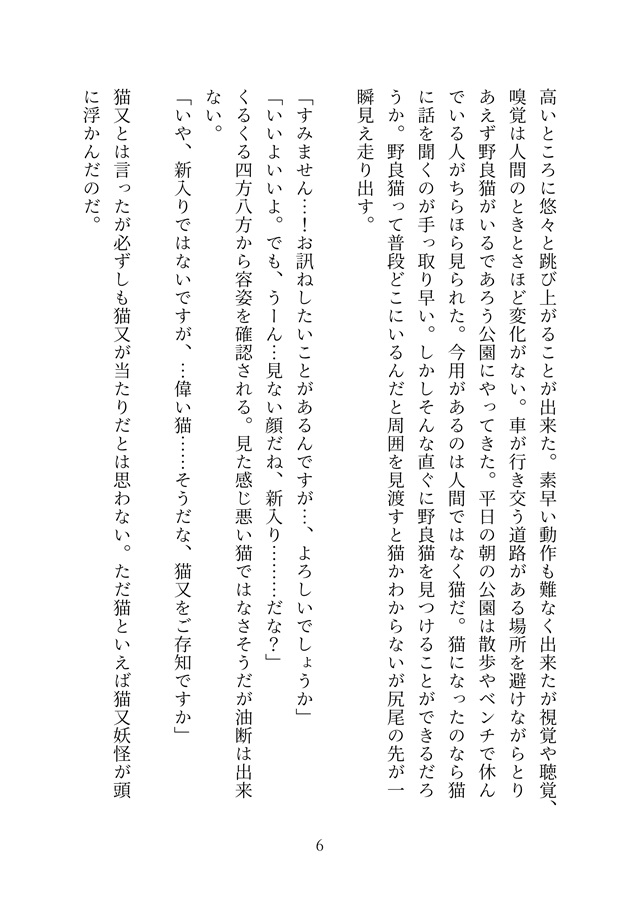 高いところに悠々と跳び上がることが出来た。素早い動作も難なく出来たが視覚や聴覚、
嗅覚は人間のときとさほど変化がない。車が行き交う道路がある場所を避けながらとり
あえず野良猫がいるであろう公園にやってきた。平日の朝の公園は散歩やベンチで休ん
でいる人がちらほら見られた。今用があるのは人間ではなく猫だ。猫になったのなら猫
に話を聞くのが手っ取り早い。しかしそんな直ぐに野良猫を見つけることができるだろ
うか。野良猫って普段どこにいるんだと周囲を見渡すと猫かわからないが尻尾の先が一
瞬見え走り出す。
「すみません…！お訊ねしたいことがあるんですが…、よろしいでしょうか」
「いいよいいよ。でも、うーん…見ない顔だね、新入り………だな？」
くるくる四方八方から容姿を確認される。見た感じ悪い猫ではなさそうだが油断は出来
ない。
「いや、新入りではないですが、…偉い猫……そうだな、猫又をご存知ですか」
猫又とは言ったが必ずしも猫又が当たりだとは思わない。ただ猫といえば猫又妖怪が頭
に浮かんだのだ。
6